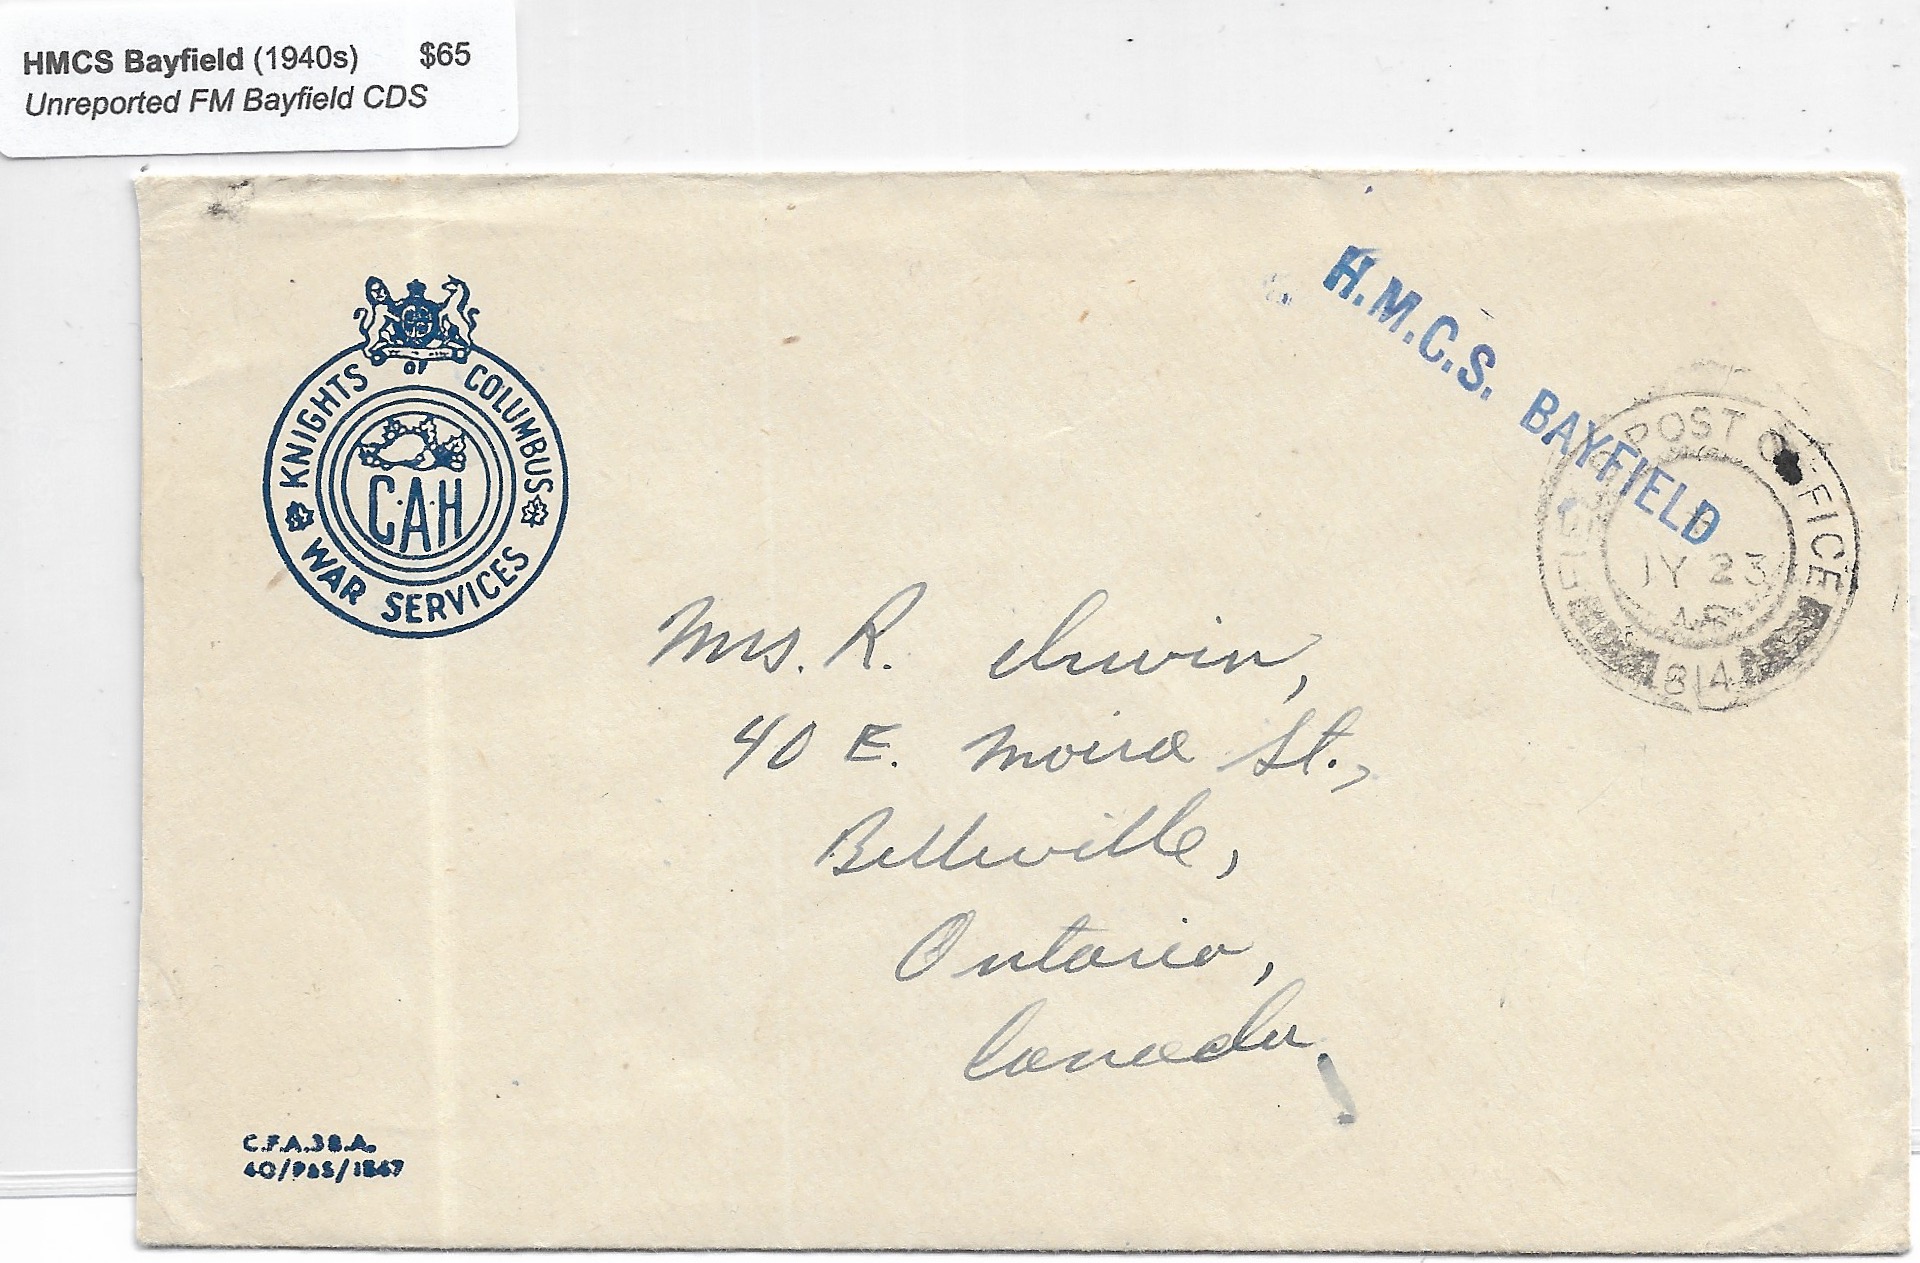 HMCS Bayfield (1940s) $65
Unreported FM Bayfield CDS
H.M.C.S. BAYFIELD
KNIGHTS OF COLUMBUS
C.A.H
WAR SERVICES
FIELD POST OFFICE
JY 23
45
814
Mrs. R. Irwin,
40 E. Moira St.,
Belleville,
Ontario,
Canada,
C.F.A.38.A.